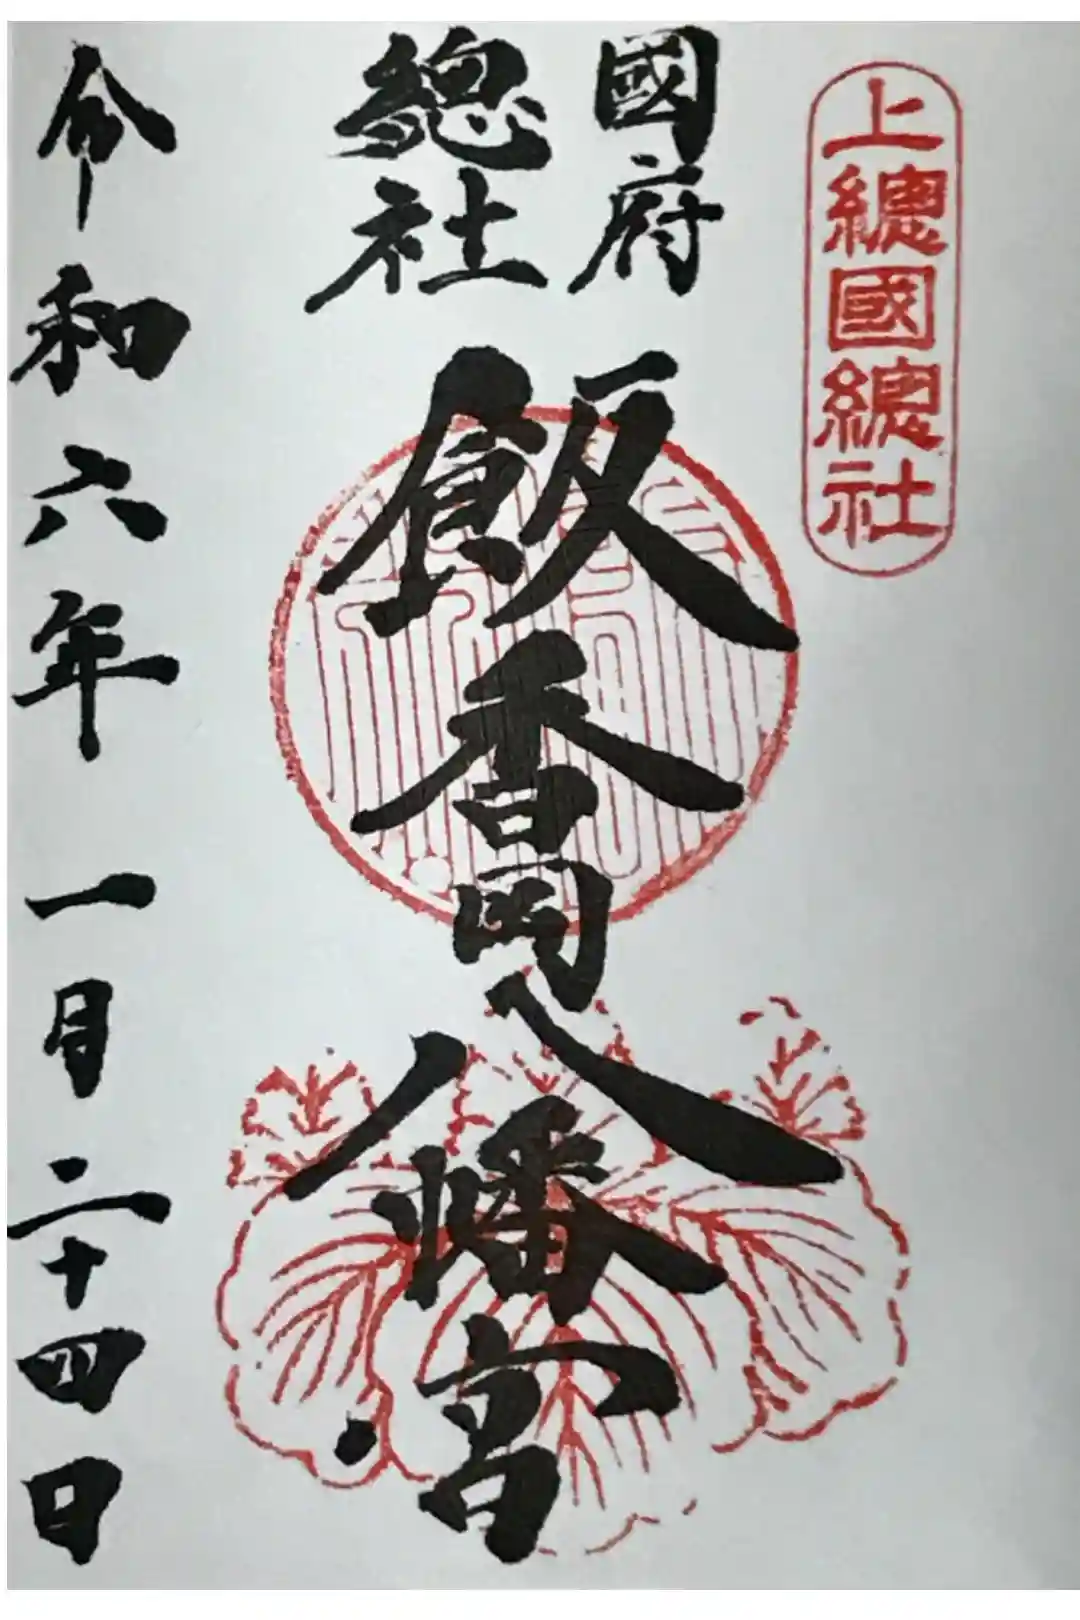 上總國總社
國府
總社
飯香岡八幡宮
令和六年一月二十四日